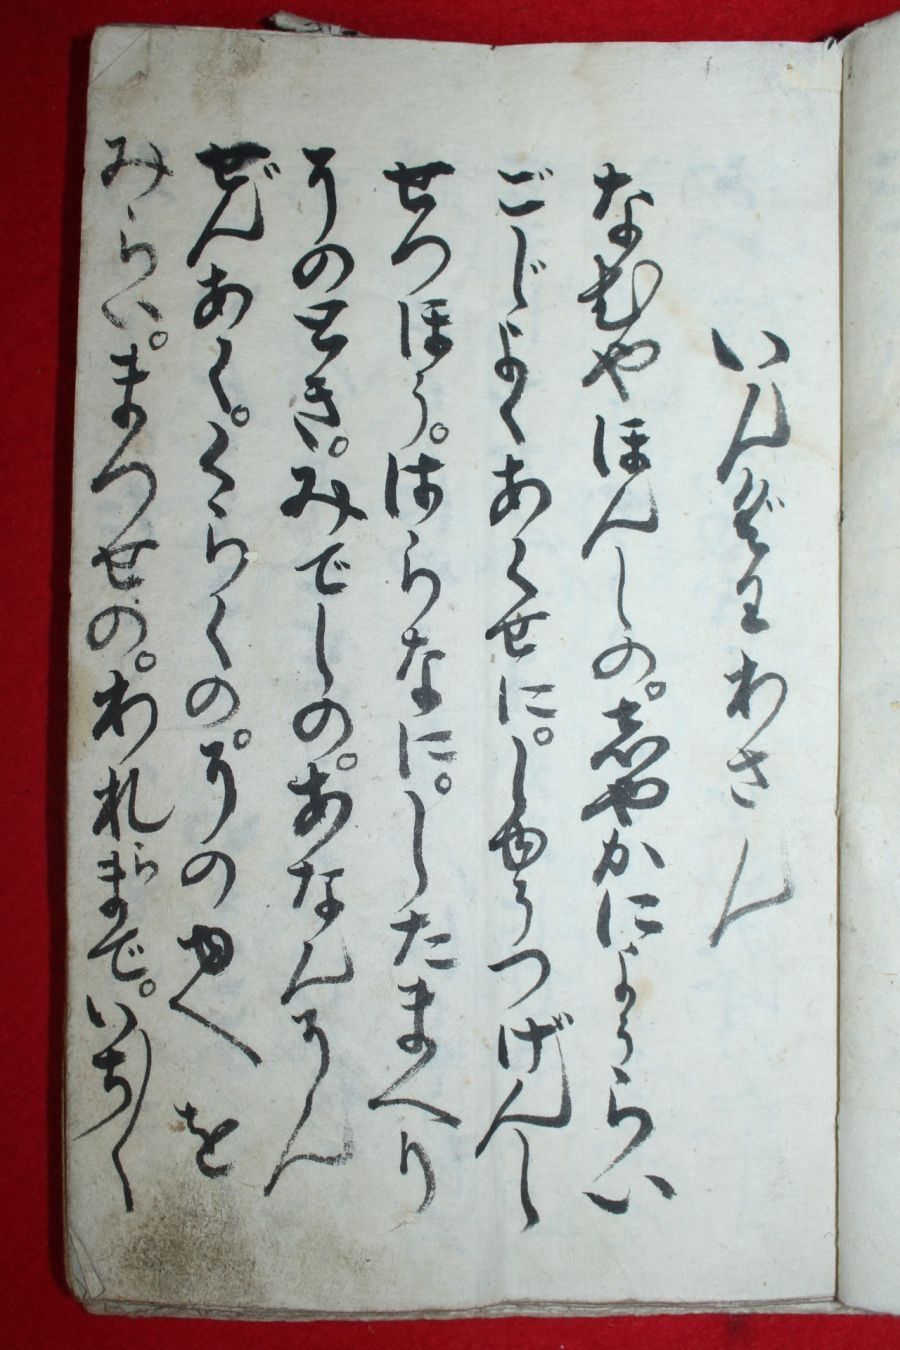 いんぐわわさん
なむやほんしの。志やかによらい
ごじよくあくせに。しゆうつげんし
せつほう。はらなに。したまへり
そのとき。みでしの。あなんそん
ぜんあく。くらくの。そのゆへを
みらい。まつせの。われらまで。いち〱